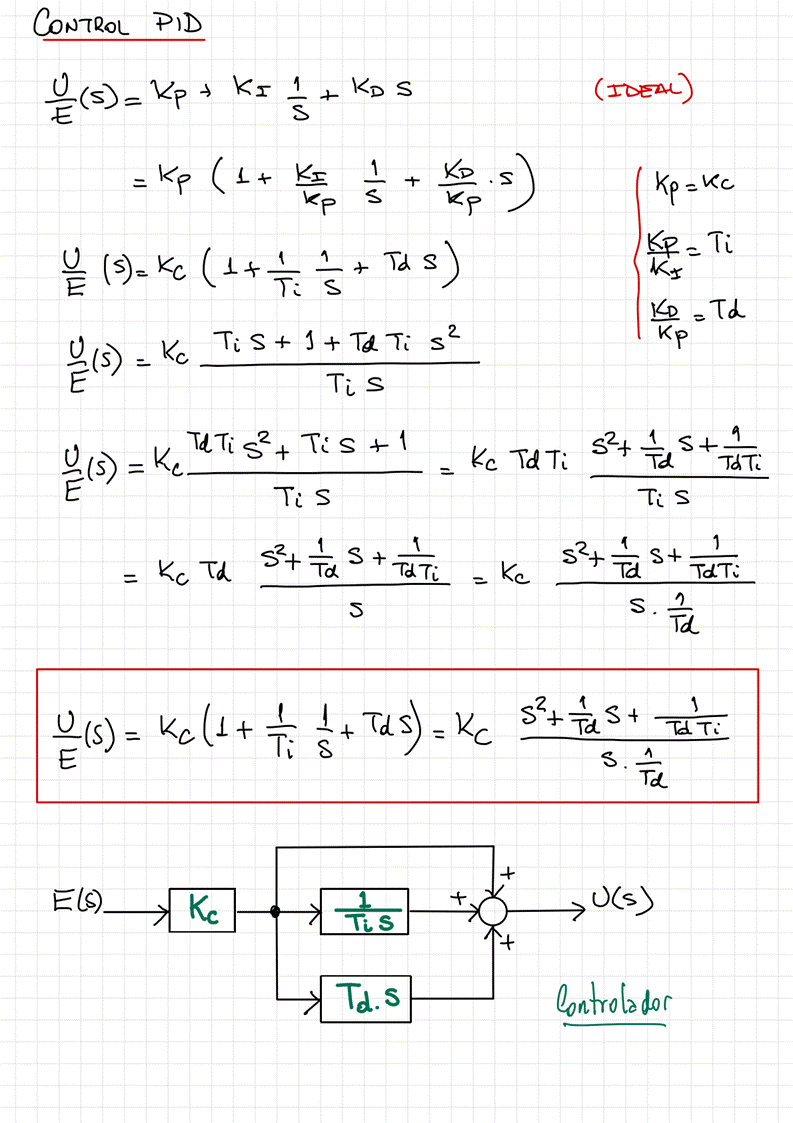 CONTROL PID
U/E (s) = Kp + KI 1/s + KD s (IDEAL)
= Kp (1 + KI/Kp 1/s + KD/Kp . s)
Kp = Kc
U/E (s) = Kc (1 + 1/Ti 1/s + Td s)
Kp/KI = Ti
KD/Kp = Td
U/E (s) = Kc (Ti s + 1 + Td Ti s²)/(Ti s)
U/E (s) = Kc (Td Ti s² + Ti s + 1)/(Ti s) = Kc Td Ti (s² + 1/Td s + 1/(Td Ti))/(Ti s)
= Kc Td (s² + 1/Td s + 1/(Td Ti))/s = Kc (s² + 1/Td s + 1/(Td Ti))/(s . 1/Td)
U/E (s) = Kc (1 + 1/Ti 1/s + Td s) = Kc (s² + 1/Td s + 1/(Td Ti))/(s . 1/Td)
+
E(s) Kc 1/(Ti s) + U(s)
+
Td . s
Controlador